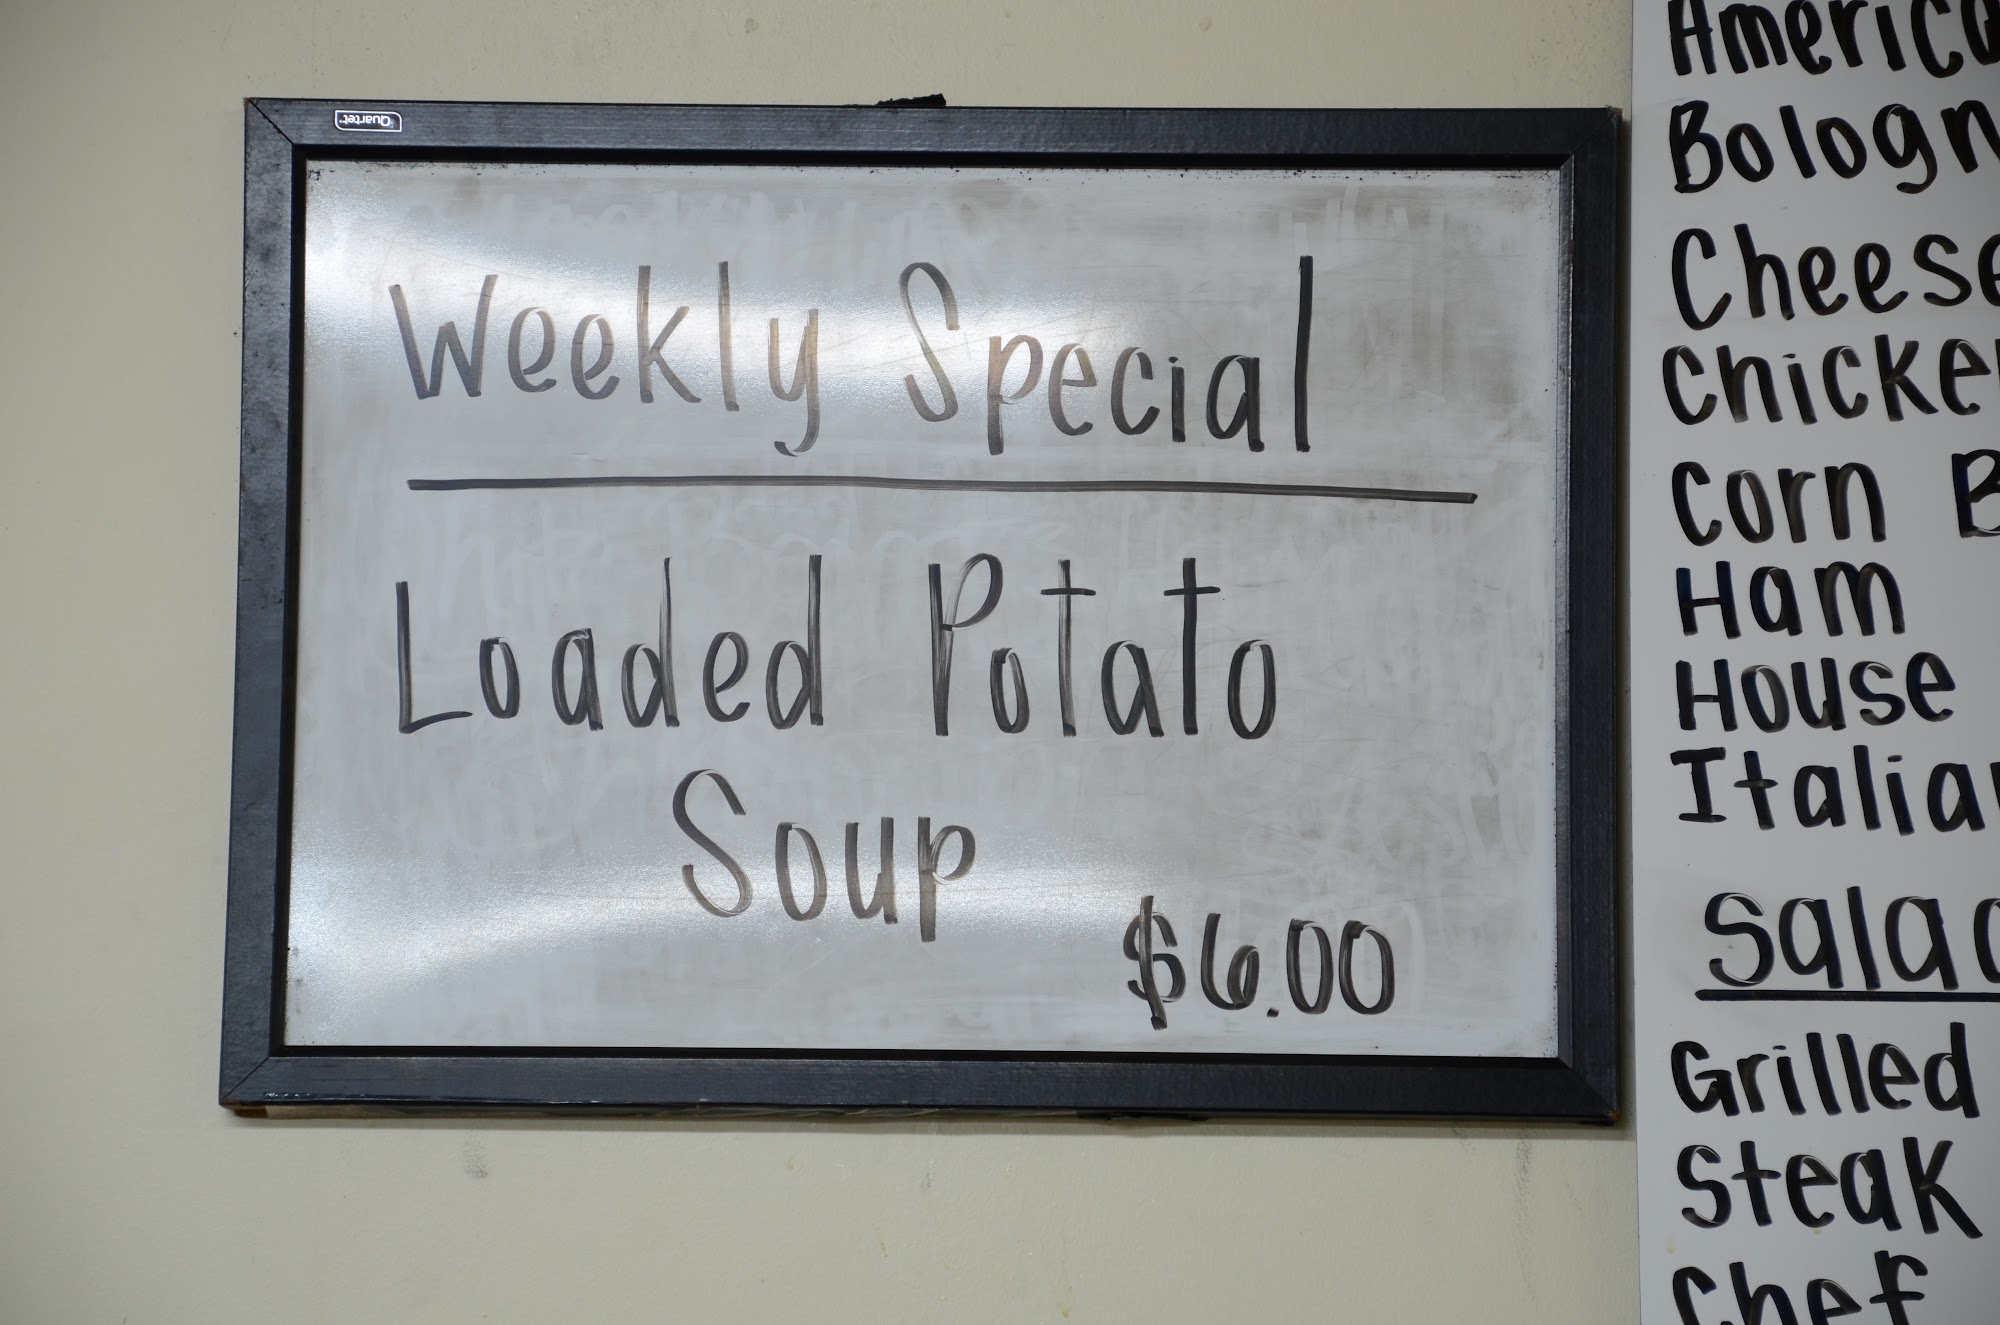 Quartet
Weekly Special
Loaded Potato
Soup
$6.00
Bologn
Cheese
Chicke
Corn B
Ham
House
Italia
Salad
Grilled
Steak
Chef